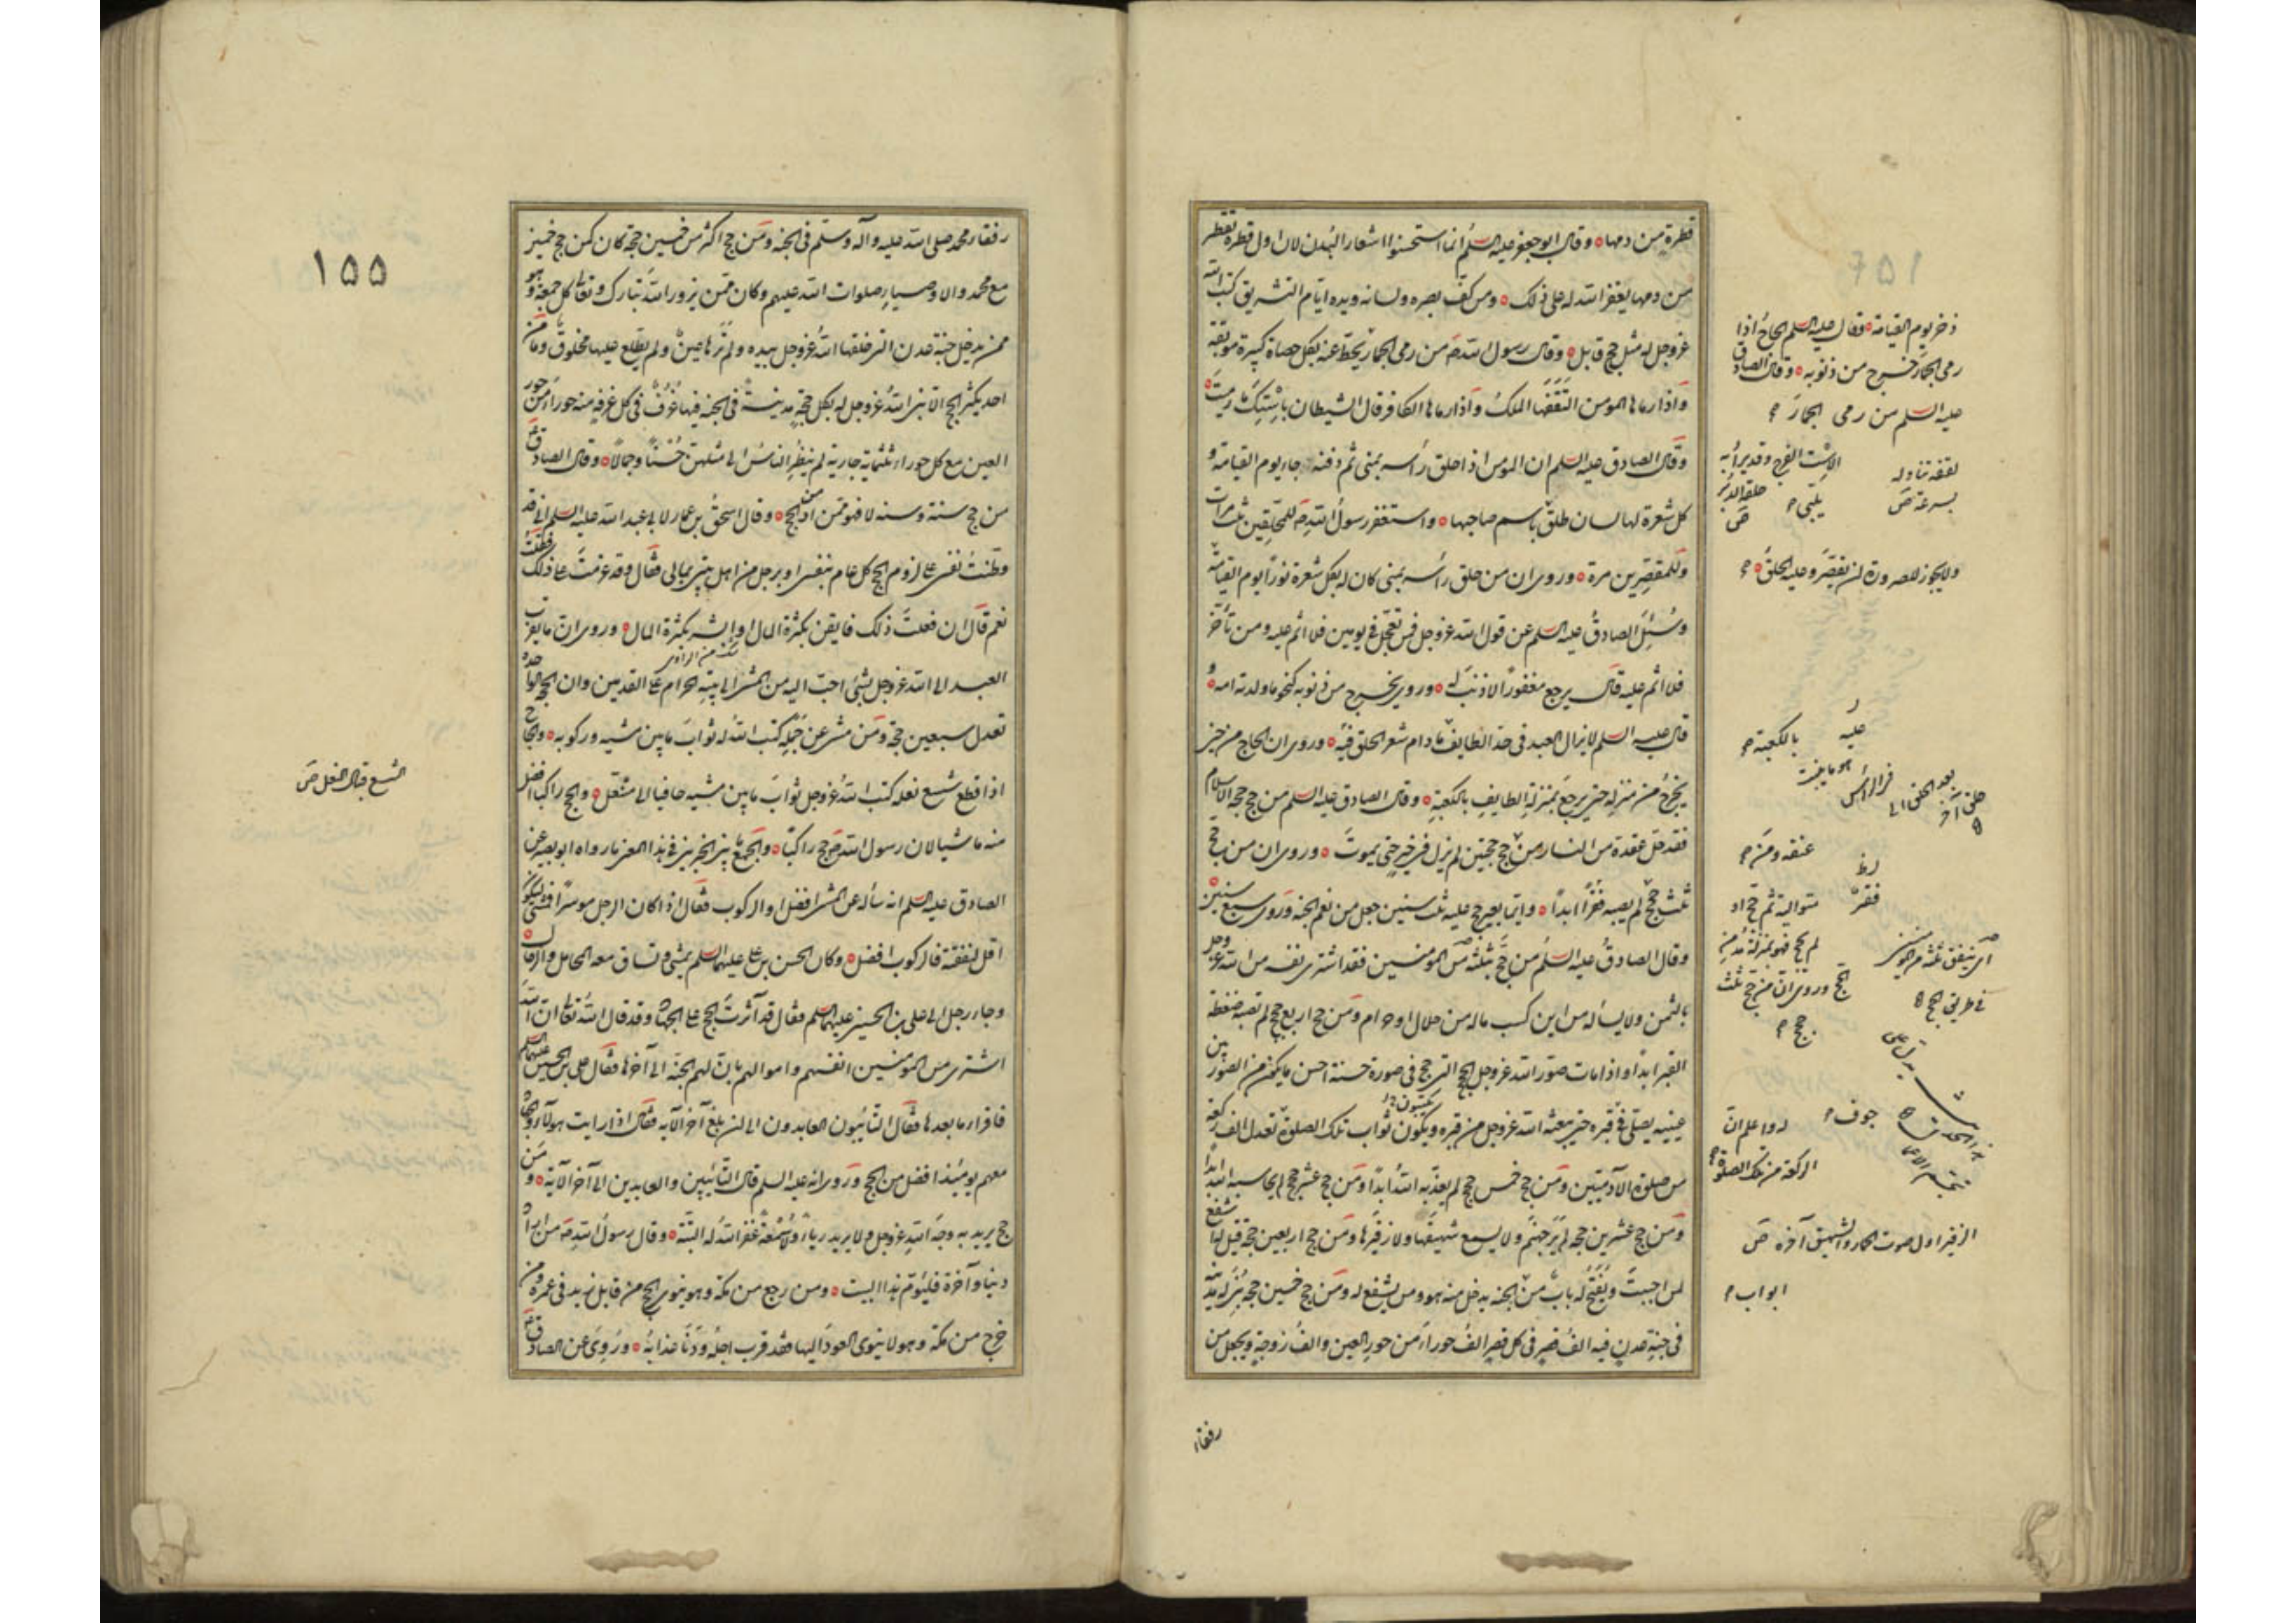 قطرة من دمها وقال ابو جعفر عليه السلم انما استحسنوا اشعار البدن لان اول قطرة تقطر
من دمها يغفر الله له على ذلك ومن كف بصره ولسانه ويده ايام التشريق كتب الله
عز وجل له مثل حج قابل وقال رسول الله صه من رمى الجمار يحط عنه بكل حصاة كبيرة موبقة
واذا رماها المومن التقفها الملك واذا رماها الكافر قال الشيطان باستك ما رميت
وقال الصادق عليه السلم ان المومن اذا حلق رأسه بمنى ثم دفنه جاء يوم القيامة و
كل شعرة لها لسان طلق باسم صاحبها واستغفر رسول الله صه للمحلقين ثلث مرات
وللمقصرين مرة وروى ان من حلق رأسه بمنى كان له بكل شعرة نورا يوم القيامة
وسئل الصادق عليه السلم عن قول الله عز وجل فمن تعجل في يومين فلا اثم عليه ومن تأخر
فلا اثم عليه قال يرجع مغفورا لا ذنب له وروى يخرج من ذنوبه كنحو ما ولدته امه
قال عليه السلم لا يزال العبد في حد الطايف ما دام شعر الحلق فيه وروى ان الحاج من حين
يخرج من منزله حتى يرجع بمنزلة الطايف بالكعبة وقال الصادق عليه السلم من حج حجة الاسلام
فقد حل عقدة من النار من حج حجتين لم يزل في خير حتى يموت وروى ان من حج
ثلث حجج لم يصبه فقر ابدا وايما بعير حج عليه ثلث سنين جعل من نعم الجنة وروى سبع سنين
وقال الصادق عليه السلم من حج بثلثة من المومنين فقد اشترى نفسه من الله عز وجل
بالثمن ولا يسأله من اين كسب ماله من حلال او حرام ومن حج اربع حجج لم تصبه ضغطة
القبر ابدا واذا مات صور الله عز وجل الحج التى حج في صورة حسنة احسن ما يكون من الصور بين
عينيه يصلى في قبره حتى يبعثه الله عز وجل من قبره ويكون ثواب تلك الصلوة تعدل الف ركعة
من صلوة الآدميين ومن حج خمس حجج لم يعذبه الله ابدا ومن حج عشر حجج لم يحاسبه الله ابدا
ومن حج عشرين حجة لم ير جهنم ولا يسمع شهيقها ولا زفيرها ومن حج اربعين حجة قيل له اشفع
لمن احببت ويفتح له باب من الجنة يدخل منه هو ومن يشفع له ومن حج خمسين حجة بنى له مدينة
في جنة عدن فيه الف قصر في كل قصر الف حوراء من حور العين والف زوجة ويجعل من
رفقاء
ذخر يوم القيامة وقال عليه السلم الحاج اذا
رمى الجمار خرج من ذنوبه وقال الصادق
عليه السلم من رمى الجمار
ولا يجوز للصرورة ان يقصر وعليه الحلق
بالكعبة
عنقه ومن
متوالية ثم حج او
لم يحج فهو بمنزلة مدمن
الحج وروى ان من حج ثلث
حجج
جوف
الركعة من تلك الصلوة
الزفير اول صوت الحمار والشهيق آخره ص
ابواب
١٥٥
رفقاء محمد صلى الله عليه وآله وسلم في الجنة ومن حج اكثر من خمسين حجة كان كمن حج خمسين
مع محمد والاوصياء صلوات الله عليهم وكان ممن يزور الله تبارك وتعالى كل جمعة وهو
ممن يدخل جنة عدن التى خلقها الله عز وجل بيده ولم ترها عين ولم يطلع عليها مخلوق وما من
احد يكثر الحج الا بنى الله عز وجل له بكل حجة مدينة في الجنة فيها غرف في كل غرفة منه حوراء من حور
العين مع كل حوراء ثلثمائة جارية لم ينظر الناس الى مثلهن حسنا وجمالا وقال الصادق
من حج سنة وسنة لا فهو ممن ادمن الحج وقال اسحق بن عمار لابي عبد الله عليه السلم انى قد
وطنت نفسى على لزوم الحج كل عام بنفسى او برجل من اهل بيتى بمالى فقال وقد عزمت على ذلك فقلت
نعم قال ان فعلت ذلك فايقن بكثرة المال او ابشر بكثرة المال وروى ان ما تقرب
العبد الى الله عز وجل بشئ احب اليه من المشى الى بيته الحرام على القدمين وان الحجة الواحدة
تعدل سبعين حجة ومن مشى عن جمله كتب الله له ثواب ما بين مشيه وركوبه والحاج
اذا قطع شسع نعله كتب الله عز وجل ثواب ما بين مشيه حافيا الى منتعل والحج راكبا افضل
منه ماشيا لان رسول الله صه حج راكبا والجمع بين الخبرين في هذا المعنى ما رواه ابو بصير عن
الصادق عليه السلم انه سأله عن المشى افضل او الركوب فقال اذا كان الرجل موسرا فمشى ليكون
اقل لنفقته فالركوب افضل وكان الحسن بن على عليهما السلم يمشى وتساق معه المحامل والرحال
وجاء رجل الى على بن الحسين عليهما السلم فقال قد آثرت الحج على الجهاد وقد قال الله تعالى ان الله
اشترى من المومنين انفسهم واموالهم بان لهم الجنة الى آخرها فقال على بن الحسين عليهما السلم
فاقرا ما بعدها فقال التائبون العابدون الى ان بلغ آخر الآية فقال اذا رايت هولاء فالجهاد
معهم يومئذ افضل من الحج وروى انه عليه السلم قال التائبين والعابدين الى آخر الآية ومن
حج يريد به وجه الله عز وجل ولا يريد رياء ولا سمعة غفر الله له البتة وقال رسول الله صه من اراد
دنيا وآخرة فليؤم هذا البيت ومن رجع من مكة وهو ينوى الحج من قابل زيد في عمره ومن
خرج من مكة وهو لا ينوى العود اليها فقد قرب اجله ودنا عذابه وروى عن الصادق
الشسع قبال النعل ص